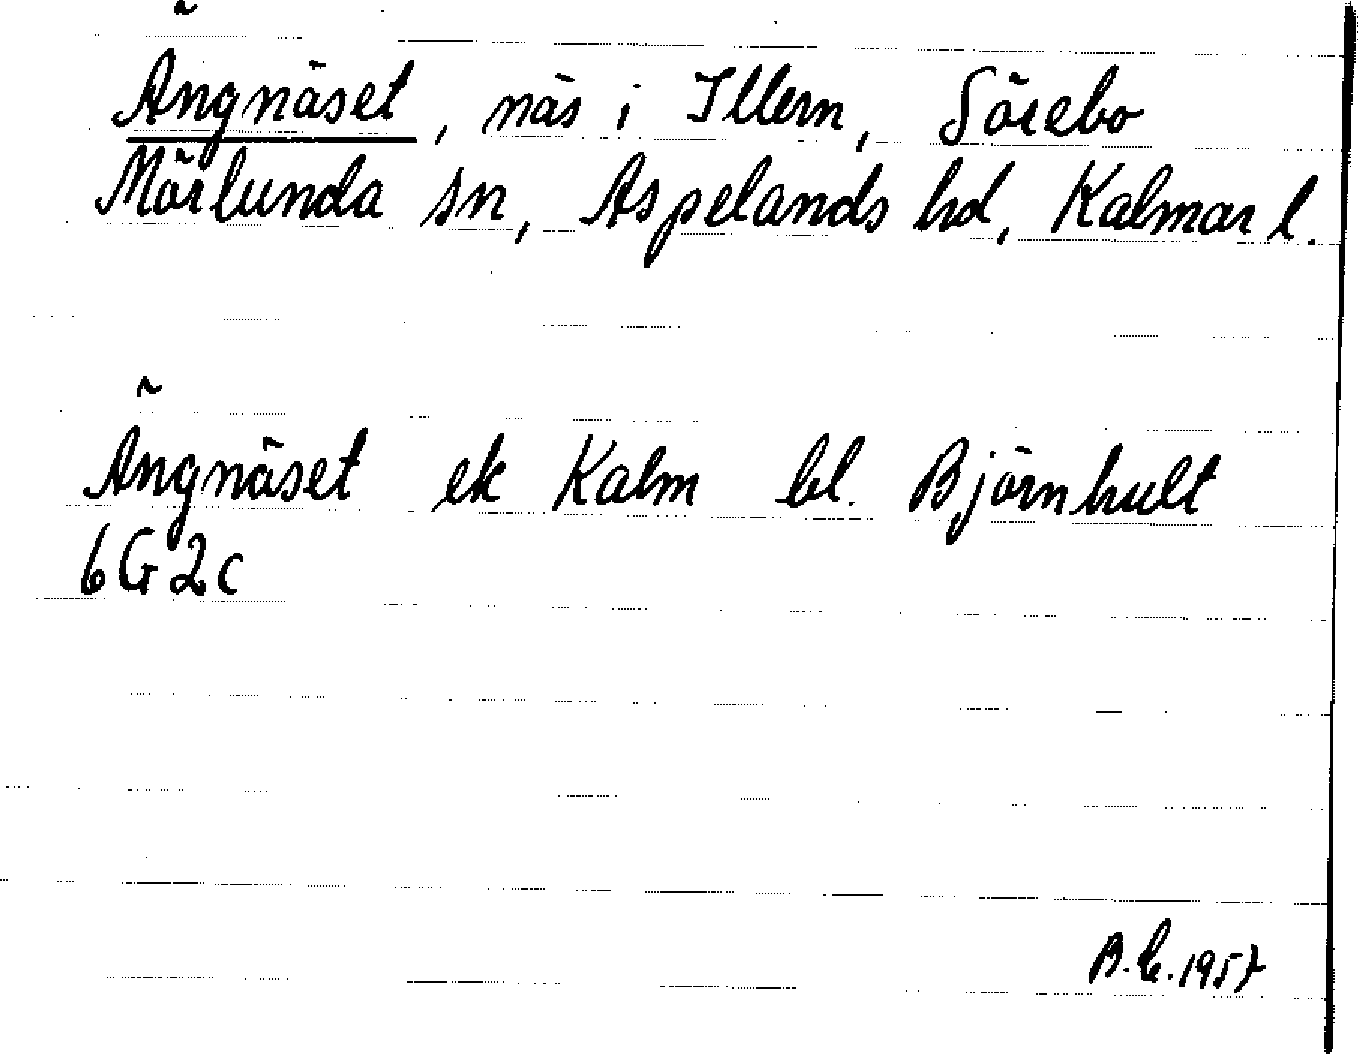 Ängnäset, näs i Illern, Sörebo
Mörlunda sn, Aspelands hd, Kalmar l.
Ängnäset ek Kalm bl. Björnhult
6G2c
1957